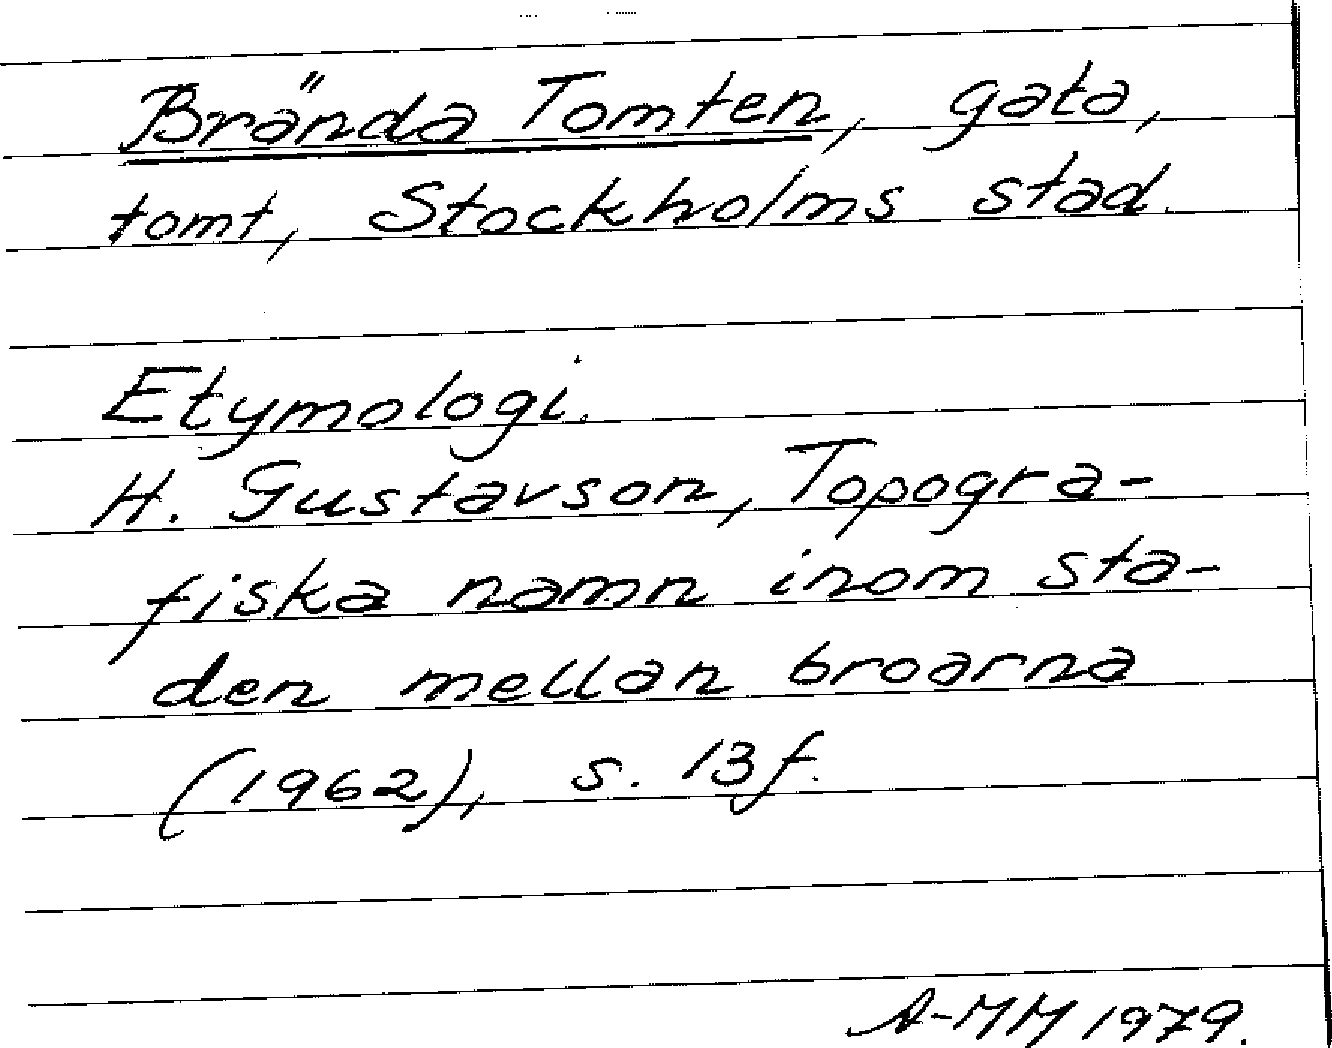 Brända Tomten, gata,
tomt, Stockholms stad.
Etymologi.
H. Gustavson, Topogra-
fiska namn inom sta-
den mellan broarna
(1962), s. 13f.
A-MM 1979.